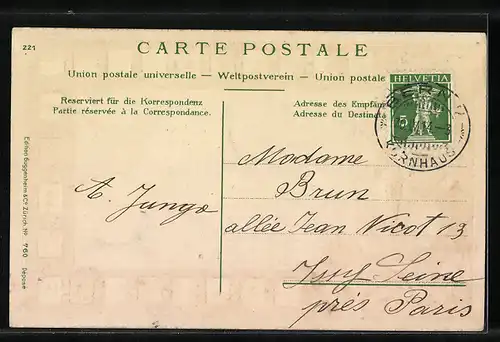 221
CARTE POSTALE
Union postale universelle — Weltpostverein — Union postale
HELVETIA
5
BERN
KORNHAUS
Reserviert für die Korrespondenz
Partie réservée à la Correspondance.
Adresse des Empfän
Adresse du Destinata
A. Jungo
Madame
Brun
allée Jean Nicot 13
Issy Seine
près Paris
Edition Guggenheim & Co. Zürich, No 760 Déposé